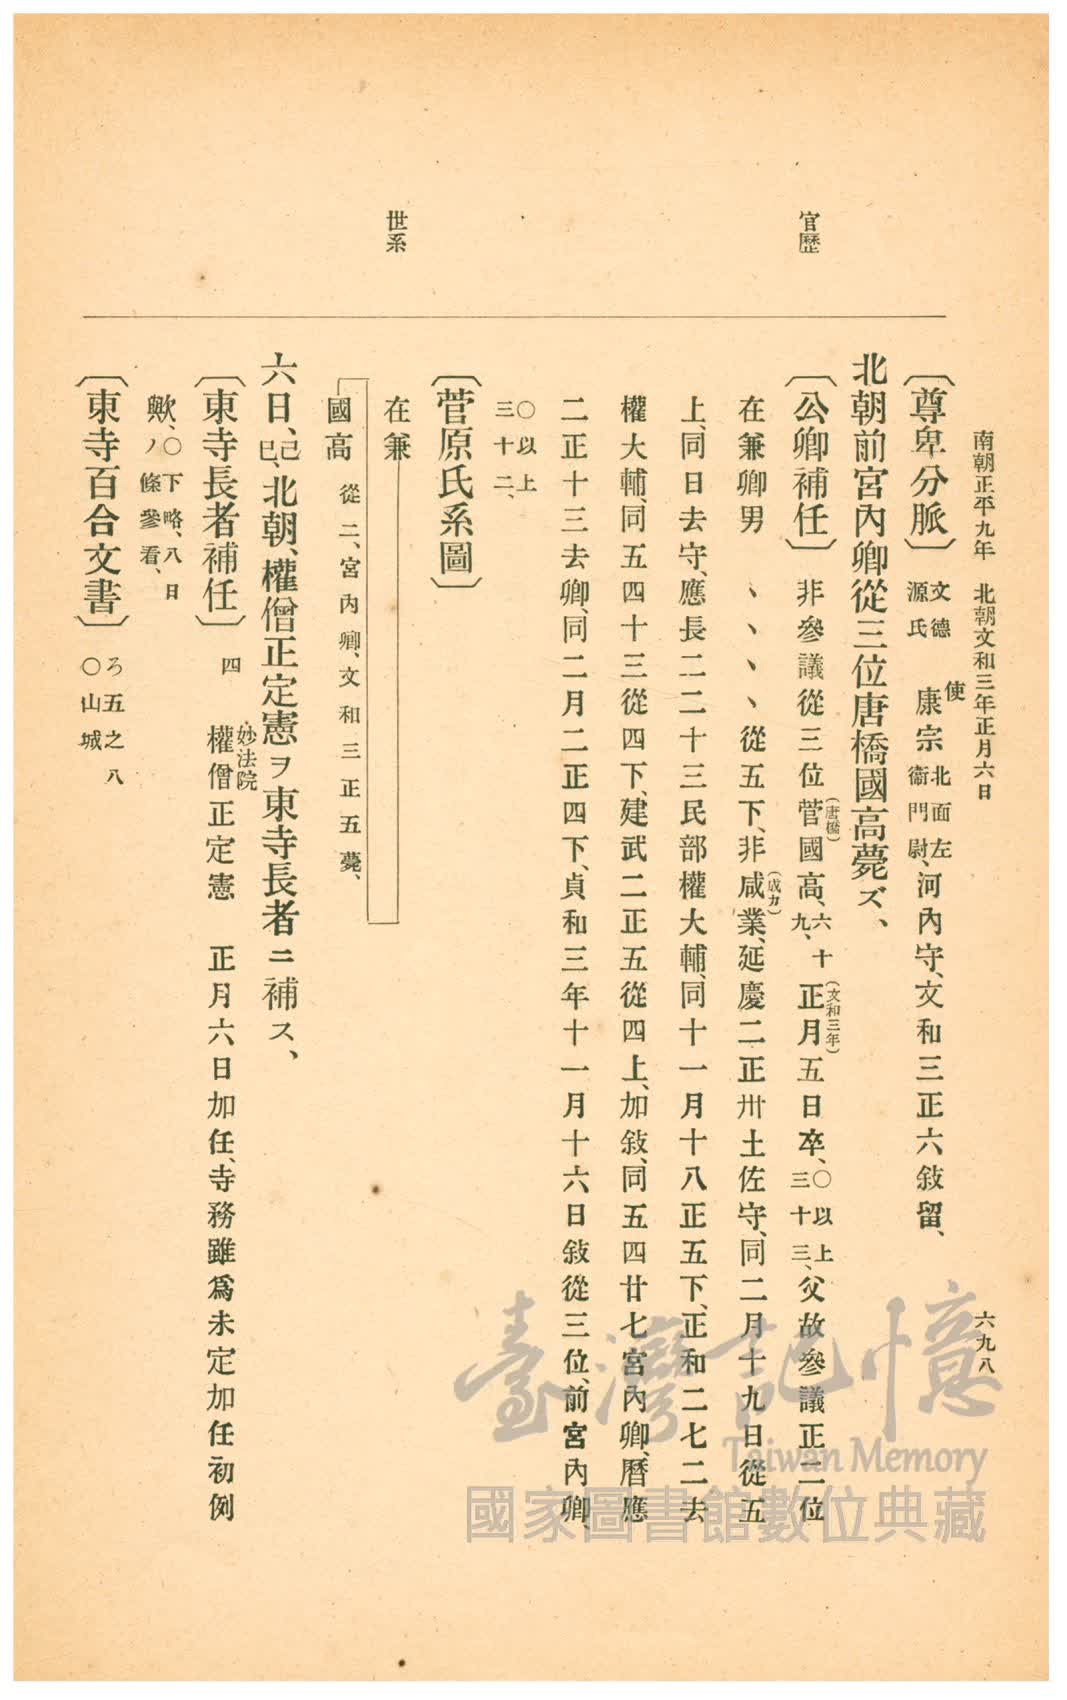 南朝正平九年 北朝文和三年正月六日 六九八
〔尊卑分脈〕 文德源氏 康宗使 北面左衞門尉、河內守、文和三正六敍留、
北朝前宮內卿從三位唐橋國高薨ズ、
官歷
〔公卿補任〕 非參議從三位菅(唐橋)國高、六十九、 正月(文和三年)五日卒、〇以上三十三、父故參議正二位
在兼卿男 、、、、從五下、非咸(成カ)業、延慶二正卅土佐守、同二月十九日從五
上、同日去守、應長二二十三民部權大輔、同十一月十八正五下、正和二七二去
權大輔、同五四十三從四下、建武二正五從四上、加敍、同五四廿七宮內卿、曆應
二正十三去卿、同二月二正四下、貞和三年十一月十六日敍從三位、前宮內卿、
〇以上三十二、
〔菅原氏系圖〕
世系
在兼
國高 從二、宮內卿、文和三正五薨、
六日、己巳、北朝、權僧正定憲ヲ東寺長者ニ補ス、
〔東寺長者補任〕 四 權僧正定憲妙法院 正月六日加任、寺務雖爲未定加任初例
歟、〇下略、八日ノ條參看、
〔東寺百合文書〕 ろ五之八〇山城
臺灣記憶
Taiwan Memory
國家圖書館數位典藏